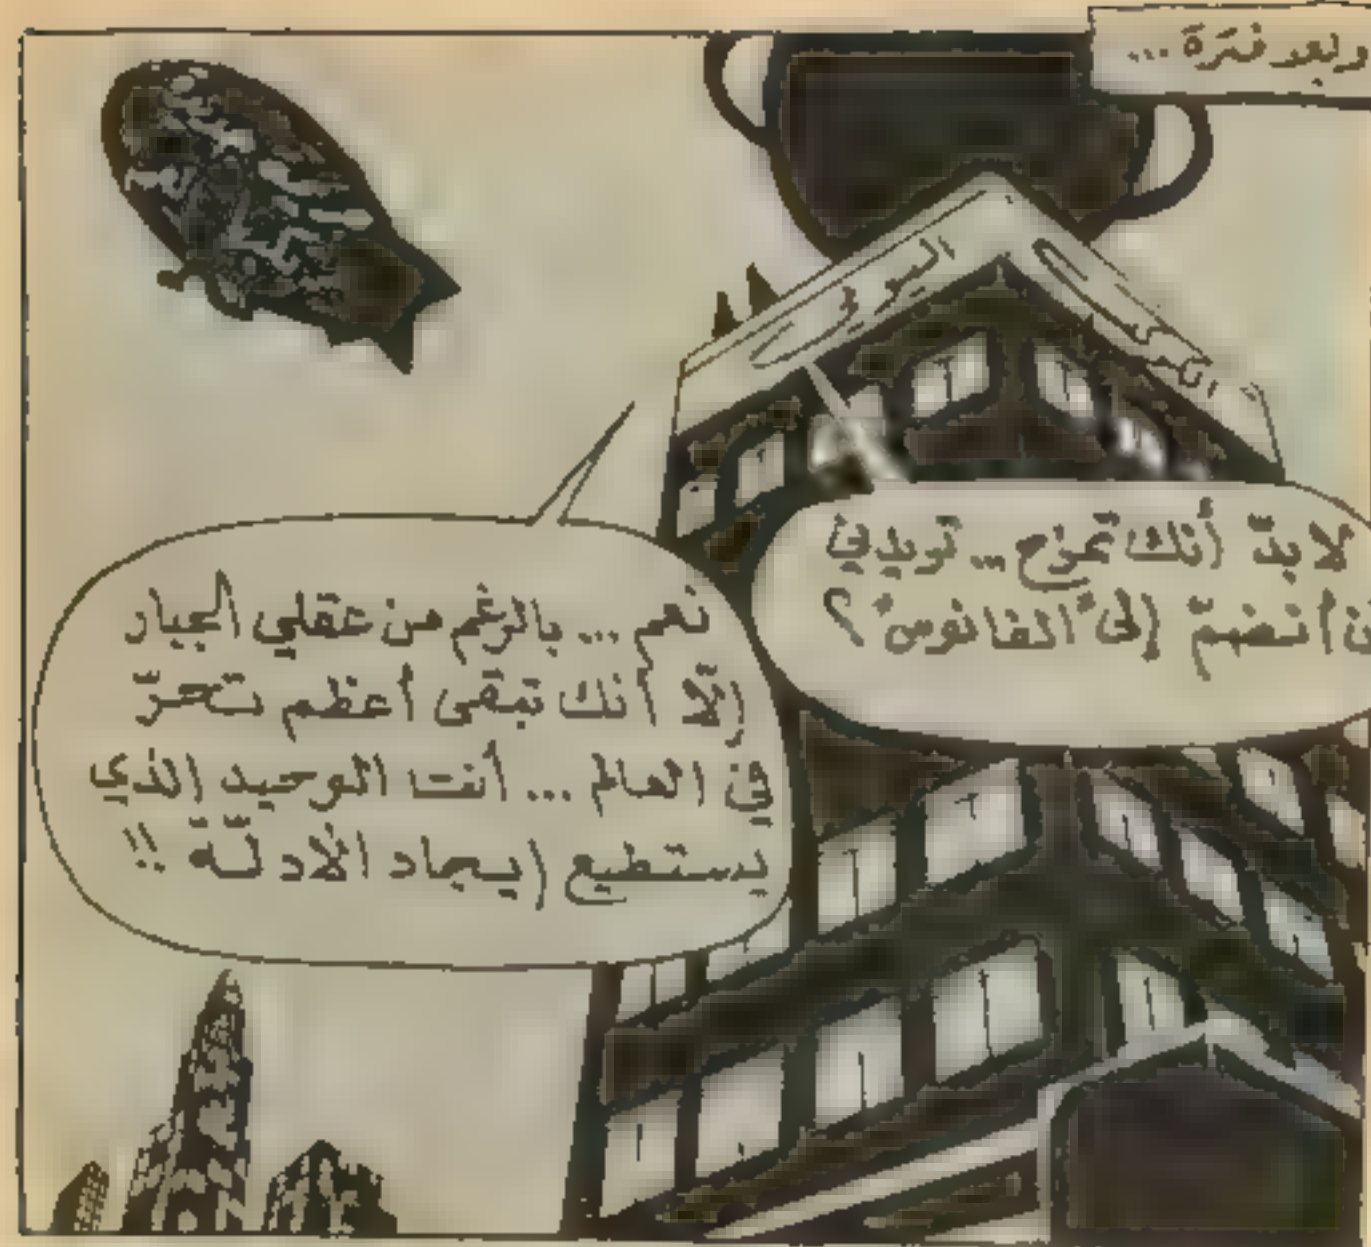 وبعد فترة ...
لا بدّ أنك تمزح ... تريدني
أن أنضمّ إلى "الفانوس" ؟
نعم ... بالرغم من عقلي الجبار
إلّا أنك تبقى أعظم تحرّ
في العالم ... أنت الوحيد الذي
يستطيع إيجاد الأدلّة !!